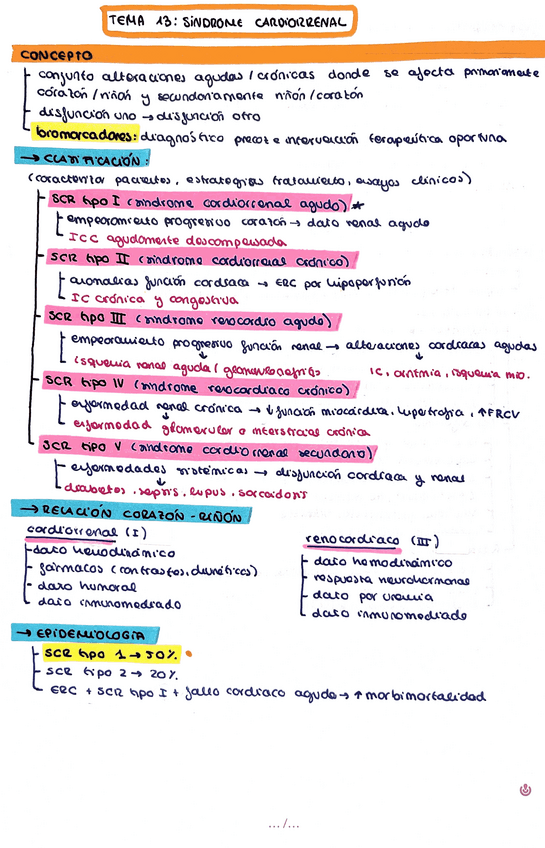 TEMA 13: SÍNDROME CARDIORRENAL
CONCEPTO
conjunto alteraciones agudas/crónicas donde se afecta primariamente
corazón/riñón y secundariamente riñón/corazón
disfunción uno → disfunción otro
biomarcadores: diagnóstico precoz e intervención terapéutica oportuna
→ CLASIFICACIÓN:
(caracterizar pacientes, estrategias tratamiento, ensayos clínicos)
SCR tipo I (síndrome cardiorrenal agudo) *
empeoramiento progresivo corazón → daño renal agudo
ICC agudamente descompensada
SCR tipo II (síndrome cardiorrenal crónico)
anomalías función cardiaca → ERC por hipoperfusión
IC crónica y congestiva
SCR tipo III (síndrome renocardio agudo)
empeoramiento progresivo función renal → alteraciones cardiacas agudas
↓ ↓
isquemia renal aguda/glomerulonefritis IC, arritmia, isquemia mio.
SCR tipo IV (síndrome renocardiaco crónico)
enfermedad renal crónica → ↓ función miocárdica, hipertrofia, ↑FRCV
↓
enfermedad glomerular o intersticial crónica
SCR tipo V (síndrome cardiorrenal secundario)
enfermedades sistémicas → disfunción cardiaca y renal
↓
diabetes, sepsis, lupus, sarcoidosis
→ RELACIÓN CORAZÓN-RIÑÓN
cardiorrenal (I)
daño hemodinámico
fármacos (contrastes, diuréticos)
daño humoral
daño inmunomediado
renocardiaco (III)
daño hemodinámico
respuesta neurohormonal
daño por uremia
daño inmunomediado
→ EPIDEMIOLOGÍA
SCR tipo 1 → 50%.
SCR tipo 2 → 20%.
ERC + SCR tipo I + fallo cardiaco agudo → ↑ morbimortalidad
.../...